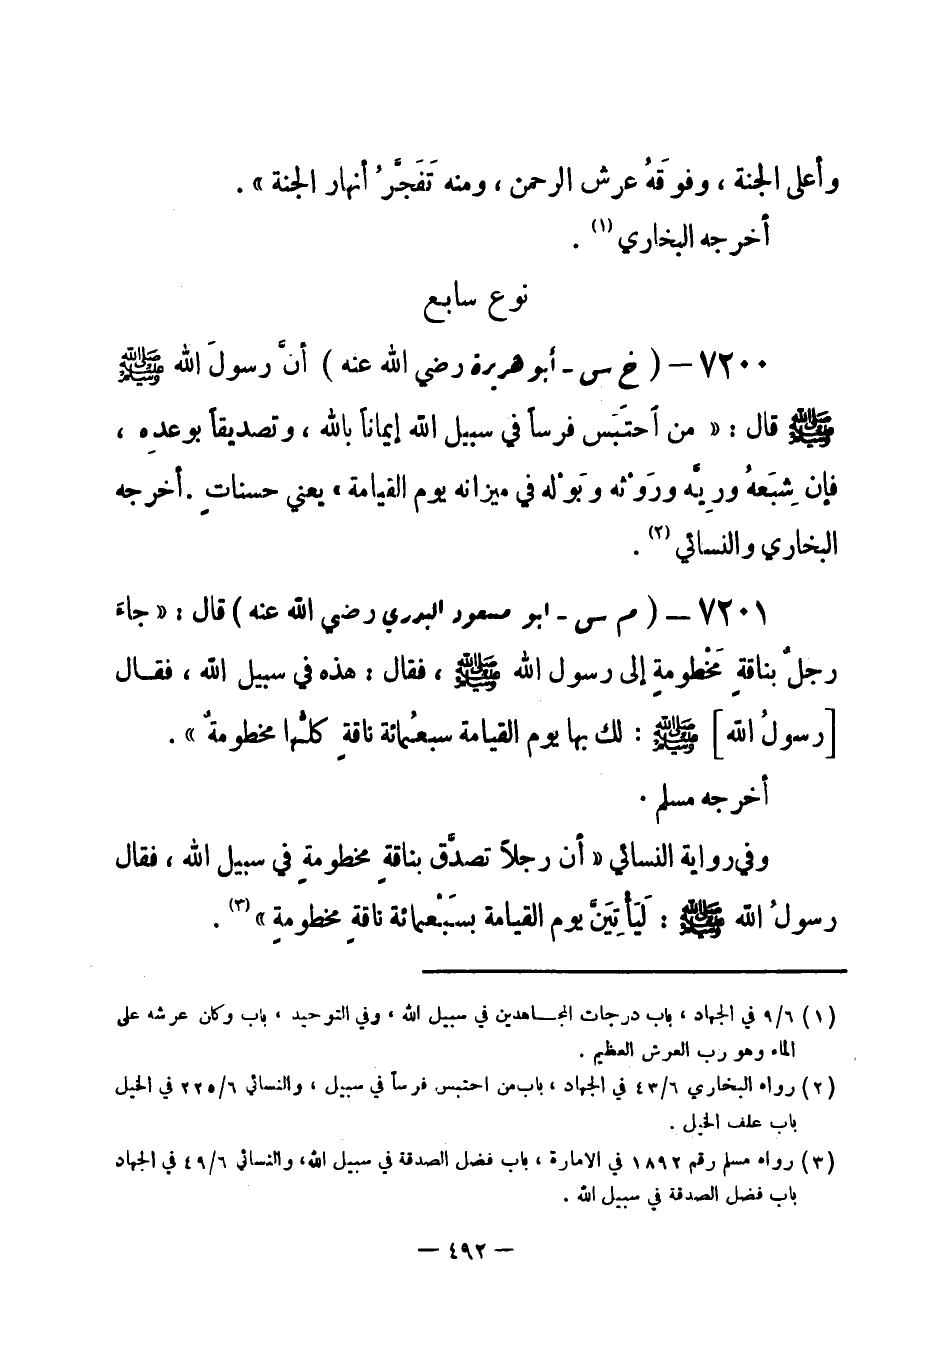 وأعلى الجنة ، وفوقَهُ عرش الرحمن ، ومنه تَفَجَّرُ أنهار الجنة » .
أخرجه البخاري (١) .
نوع سابع
٧٢٠٠ – ( خ س - أبو هريرة رضي الله عنه ) أنَّ رسولَ الله ﷺ
ﷺ قال : « من أحتَبَس فرساً في سبيل الله إيماناً بالله ، وتصديقاً بوعدِه ،
فإن شِبَعهُ ورِيَّه ورَوْثه وبَوْله في ميزانه يوم القيامة » يعني حسناتٍ . أخرجه
البخاري والنسائي (٢) .
٧٢٠١ – ( م س - ابو مسعود البدري رضي الله عنه ) قال : « جاءَ
رجلٌ بناقةٍ مَخْطومةٍ إلى رسول الله ﷺ ، فقال : هذه في سبيل الله ، فقال
[ رسولُ الله ] ﷺ : لك بها يوم القيامة سبعُمائة ناقةٍ كلُّها مخطومةٌ » .
أخرجه مسلم .
وفي رواية النسائي « أن رجلاً تصدَّق بناقةٍ مخطومةٍ في سبيل الله ، فقال
رسولُ الله ﷺ : لَيَأْتِيَنَّ يوم القيامة بسَبْعمائة ناقةٍ مخطومةٍ » (٣) .
(١) ٩/٦ في الجهاد ، باب درجات المجاهدين في سبيل الله ، وفي التوحيد ، باب وكان عرشه على
الماء وهو رب العرش العظيم .
(٢) رواه البخاري ٤٣/٦ في الجهاد ، باب من احتبس فرساً في سبيل ، والنسائي ٢٢٥/٦ في الخيل
باب علف الخيل .
(٣) رواه مسلم رقم ١٨٩٢ في الامارة ، باب فضل الصدقة في سبيل الله، والنسائي ٤٩/٦ في الجهاد
باب فضل الصدقة في سبيل الله .
– ٤٩٢ –